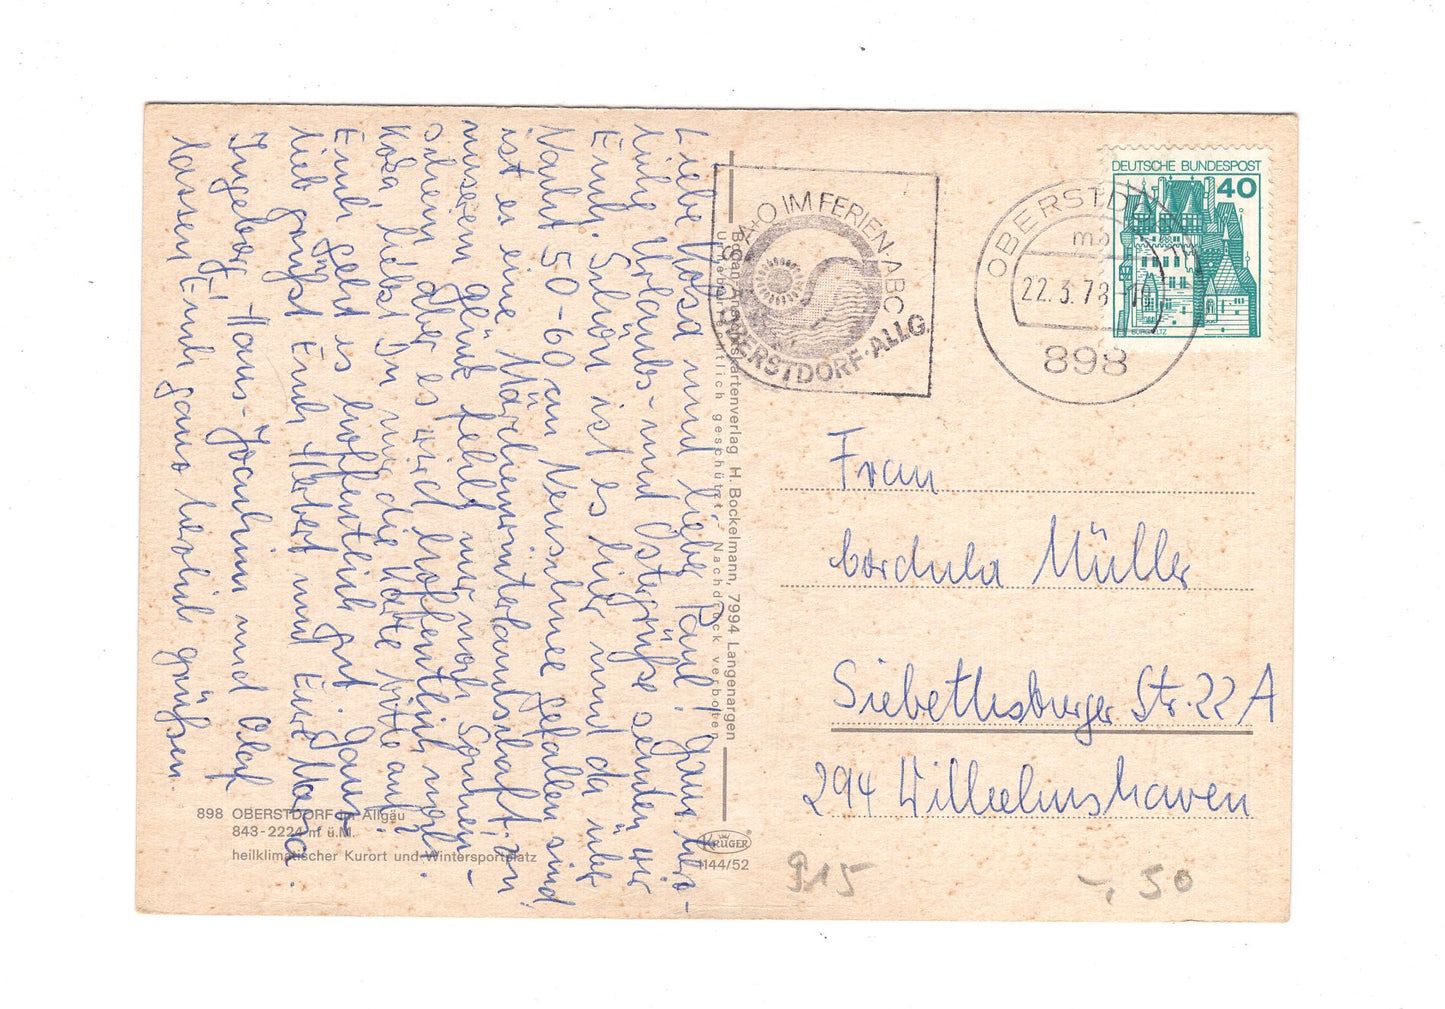 Liebe Rosa und lieber Paul! Ganz herz-
liche Urlaubs- und Ostergrüße senden wir
Euch. Schön ist es hier und da über
Nacht 50-60 cm Neuschnee gefallen sind
ist es eine Märchenwinterlandschaft. Zu
unserem Glück fehlt nur noch Sonnen-
schein aber es wird hoffentlich noch.
Rosa, liebst Du mir die Karte bitte auf?
Euch geht es hoffentlich gut. Ganz
lieb grüßt Euch Herbert und Eure Marsa.
Ingeborg, Hans-Joachim und Olaf
lassen Euch ganz herzlich grüßen.
898 OBERSTDORF im Allgäu
843-2224 m ü.M.
heilklimatischer Kurort und Wintersportplatz
Bodan-Ansichtskartenverlag H. Bockelmann, 7994 Langenargen
Urheberrechtlich geschützt - Nachdruck verboten
KRÜGER
1144/52
DAS A+O IM FERIEN-ABC
OBERSTDORF·ALLG.
OBERSTDORF
22.3.78-16
898
DEUTSCHE BUNDESPOST
40
BURG ELTZ
Frau
Cordula Müller
Siebethsburger Str. 22A
294 Wilhelmshaven
915
-,50